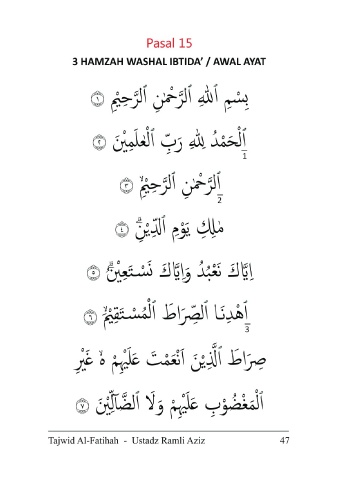 Pasal 15
3 HAMZAH WASHAL IBTIDA’ / AWAL AYAT
بِسْمِ ٱللهِ ٱلرَّحْمٰنِ ٱلرَّحِيْمِ ۝١
ٱلْحَمْدُ لِلهِ رَبِّ ٱلْعٰلَمِيْنَ ۝٢
1
ٱلرَّحْمٰنِ ٱلرَّحِيْمِۙ ۝٣
2
مٰلِكِ يَوْمِ ٱلدِّيْنِۗ ۝٤
اِيَّاكَ نَعْبُدُ وَاِيَّاكَ نَسْتَعِيْنُۗ ۝٥
ٱهْدِنَا ٱلصِّرَاطَ ٱلْمُسْتَقِيْمَۙ ۝٦
3
صِرَاطَ ٱلَّذِيْنَ اَنْعَمْتَ عَلَيْهِمْ ەۙ غَيْرِ
ٱلْمَغْضُوْبِ عَلَيْهِمْ وَلَا ٱلضَّآلِّيْنَ ۝٧
Tajwid Al-Fatihah - Ustadz Ramli Aziz 47